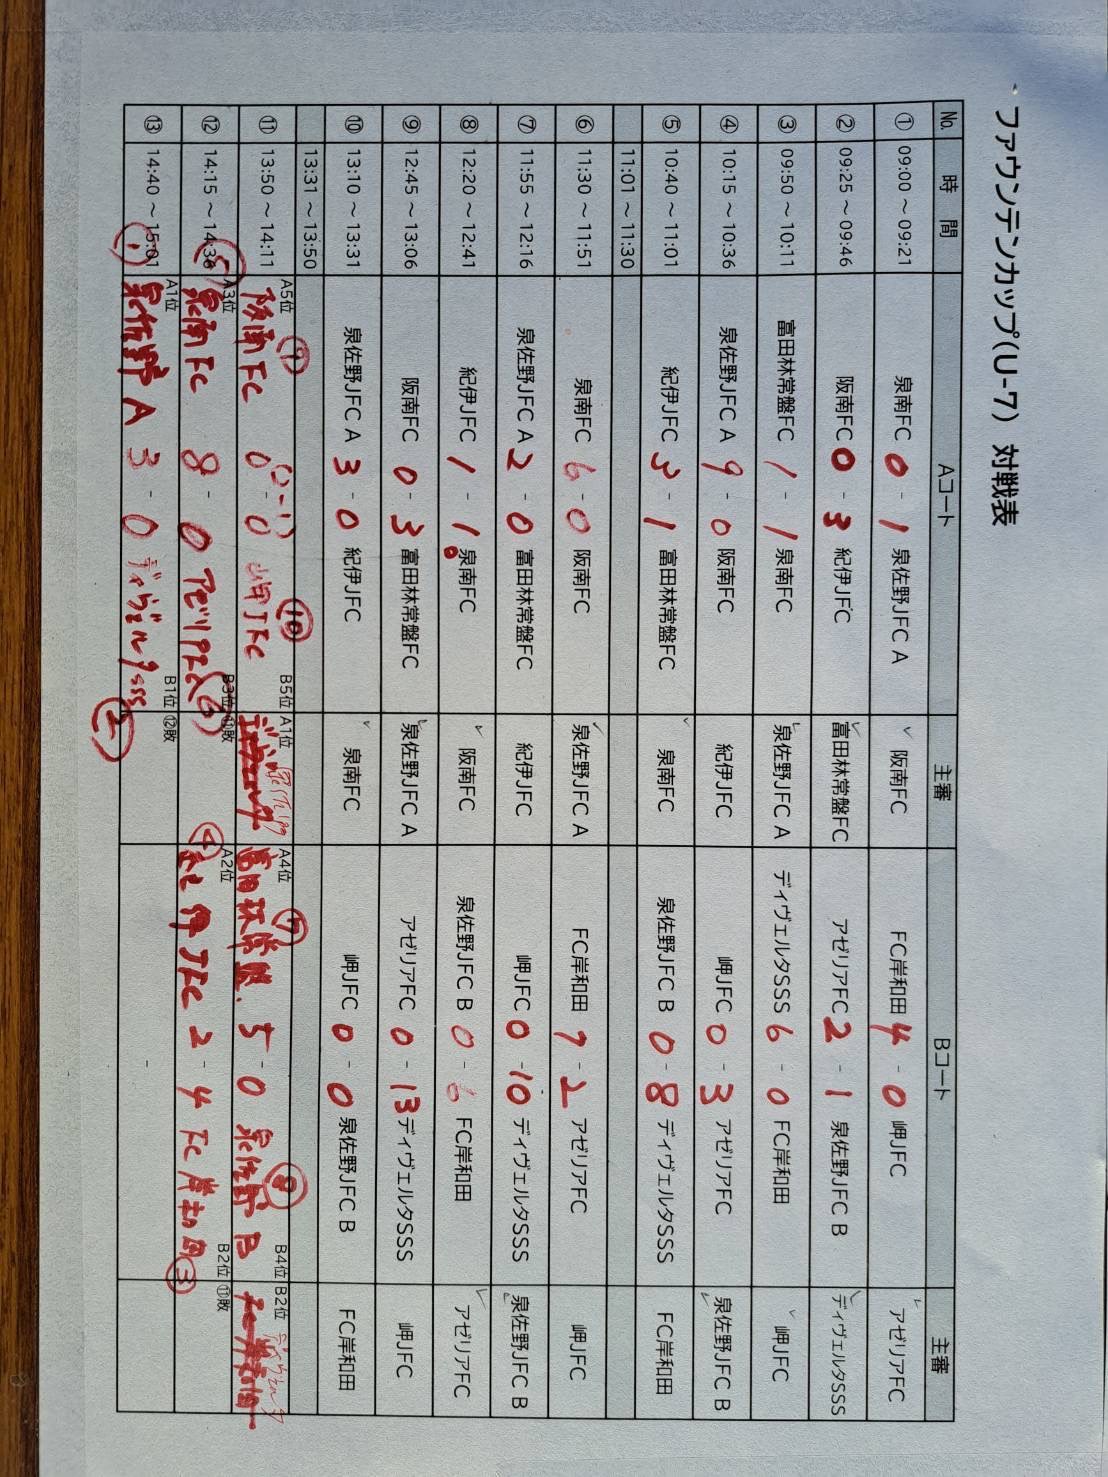 ファウンテンカップ(U-7) 対戦表
No. 時 間 Aコート 主審 Bコート 主審
① 09:00 ～ 09:21 泉南FC 0 - 1 泉佐野JFC A 阪南FC FC岸和田 4 - 0 岬JFC アゼリアFC
② 09:25 ～ 09:46 阪南FC 0 - 3 紀伊JFC 富田林常盤FC アゼリアFC 2 - 1 泉佐野JFC B ディヴェルタSSS
③ 09:50 ～ 10:11 富田林常盤FC 1 - 1 泉南FC 泉佐野JFC A ディヴェルタSSS 6 - 0 FC岸和田 岬JFC
④ 10:15 ～ 10:36 泉佐野JFC A 9 - 0 阪南FC 紀伊JFC 岬JFC 0 - 3 アゼリアFC 泉佐野JFC B
⑤ 10:40 ～ 11:01 紀伊JFC 3 - 1 富田林常盤FC 泉南FC 泉佐野JFC B 0 - 8 ディヴェルタSSS FC岸和田
11:01 ～ 11:30
⑥ 11:30 ～ 11:51 泉南FC 6 - 0 阪南FC 泉佐野JFC A FC岸和田 7 - 2 アゼリアFC 岬JFC
⑦ 11:55 ～ 12:16 泉佐野JFC A 2 - 0 富田林常盤FC 紀伊JFC 岬JFC 0 - 10 ディヴェルタSSS 泉佐野JFC B
⑧ 12:20 ～ 12:41 紀伊JFC 1 - 1 泉南FC 阪南FC 泉佐野JFC B 0 - 6 FC岸和田 アゼリアFC
⑨ 12:45 ～ 13:06 阪南FC 0 - 3 富田林常盤FC 泉佐野JFC A アゼリアFC 0 - 13 ディヴェルタSSS 岬JFC
⑩ 13:10 ～ 13:31 泉佐野JFC A 3 - 0 紀伊JFC 泉南FC 岬JFC 0 - 0 泉佐野JFC B FC岸和田
13:31 ～ 13:50
⑪ 13:50 ～ 14:11 A5位 ⑨ 阪南FC 0 - 0 岬JFC ⑩ B5位 A1位 A4位 ⑦ 富田林常盤 5 - 0 泉佐野B ⑧ B4位 B2位
⑫ 14:15 ～ 14:36 ⑤ A3位 泉南FC 8 - 0 アゼリア ⑥ B3位 ⑪敗 ④ A2位 紀伊JFC 2 - 4 FC岸和田 ③ B2位 ⑪敗
⑬ 14:40 ～ 15:01 ① A1位 泉佐野A 3 - 0 ディヴェルタsss ② B1位 ⑫敗 -